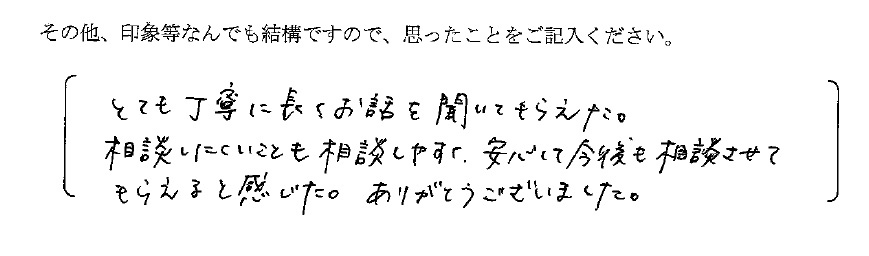 その他、印象等なんでも結構ですので、思ったことをご記入ください。
とても丁寧に長くお話を聞いてもらえた。
相談しにくいことも相談しやすく、安心して今後も相談させて
もらえると感じた。ありがとうございました。